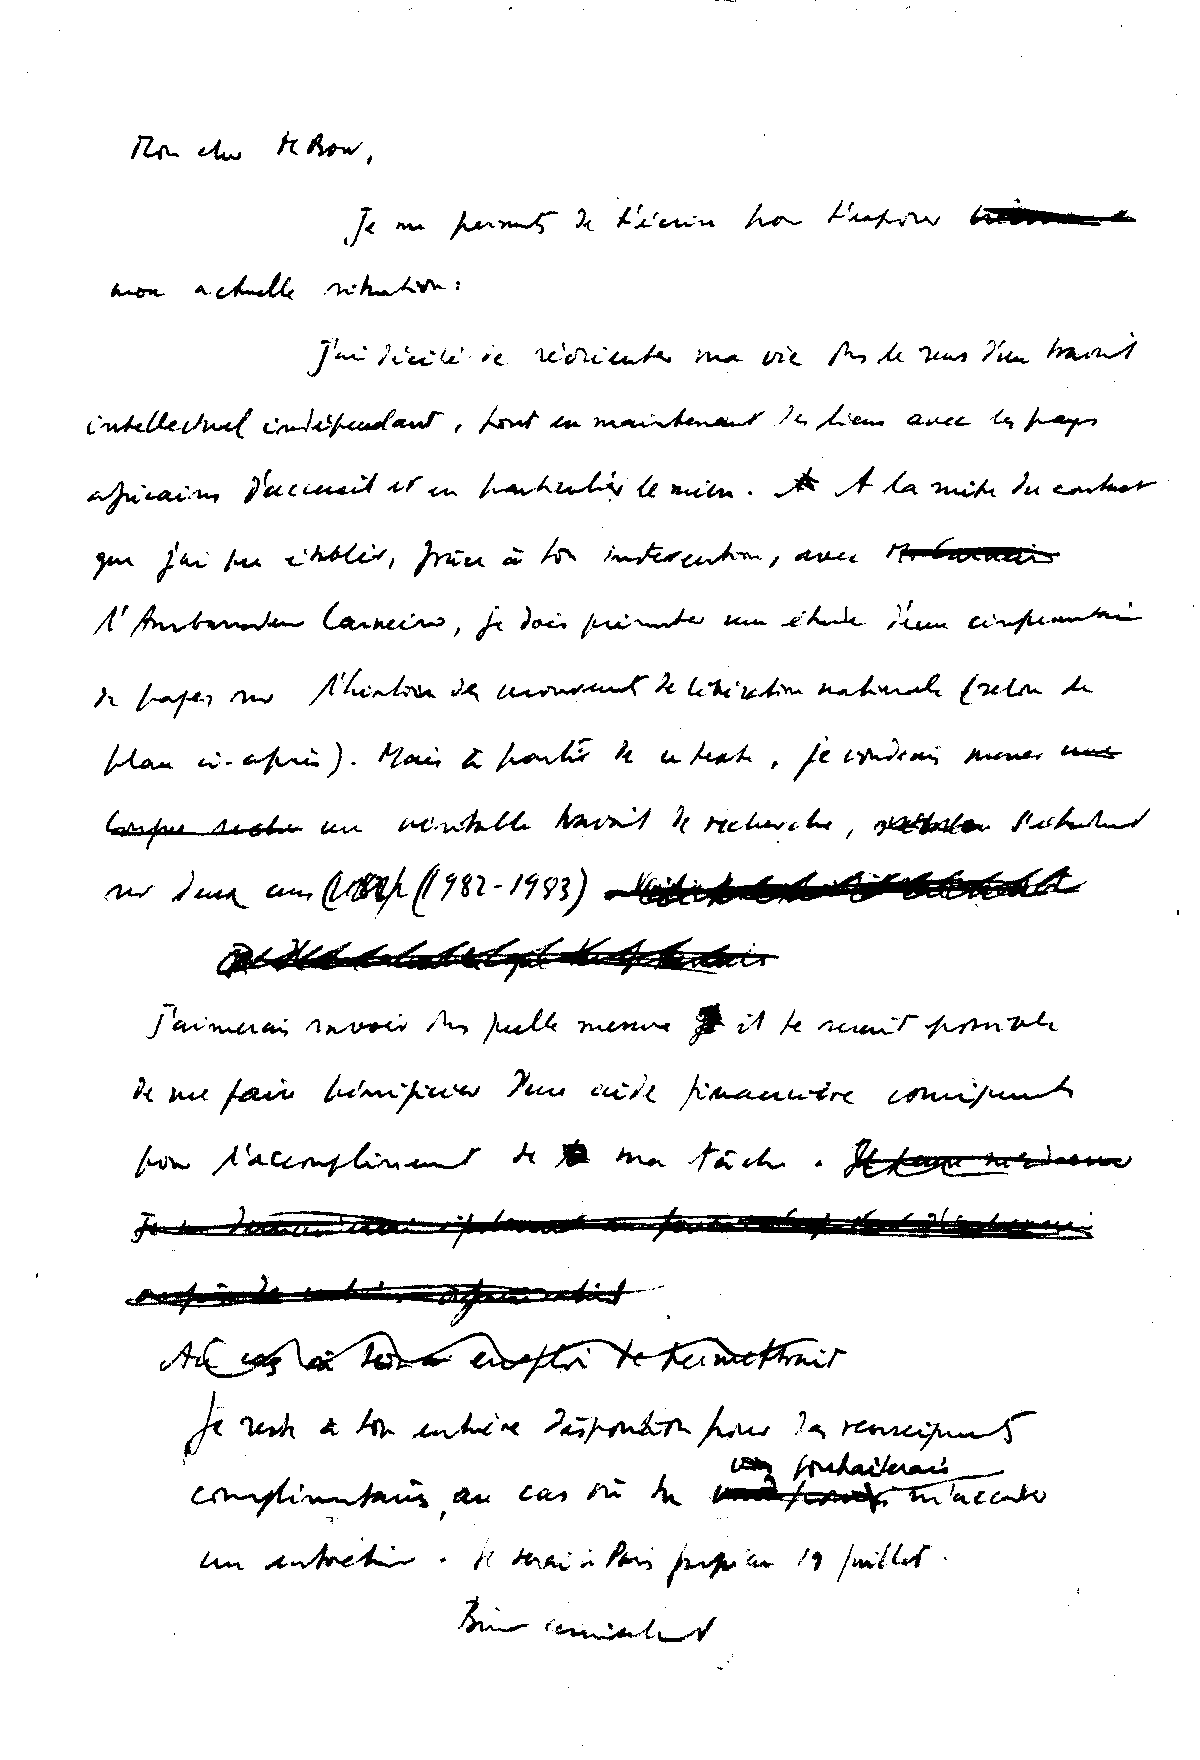 Mon cher M'Bow,
Je me permets de t'écrire pour t'exposer
mon actuelle situation :
J'ai décidé de réorienter ma vie ds le sens d'un travail
intellectuel indépendant, tout en maintenant des liens avec les pays
africains d'accueil et en particulier le mien. A la suite du contact
que j'ai pu établir, grâce à ton intervention, avec
l'Ambassadeur Carneiro, je dois présenter une étude d'une cinquantaine
de pages sur l'histoire des mouvements de libération nationale (selon le
plan ci-après). Mais à partir de ce texte, je voudrais mener une
un véritable travail de recherche, s'étendant
sur deux ans (1982-1983)
J'aimerais savoir ds quelle mesure il te serait possible
de me faire bénéficier d'une aide financière conséquente
pour l'accomplissement de ma tâche.
Au cas où ton emploi te permettrait
Je reste à ton entière disposition pour des renseignements
souhaiterais
complémentaires, au cas où tu m'accorder
un entretien. Je serai à Paris jusqu'au 19 juillet.
Bien amicalement